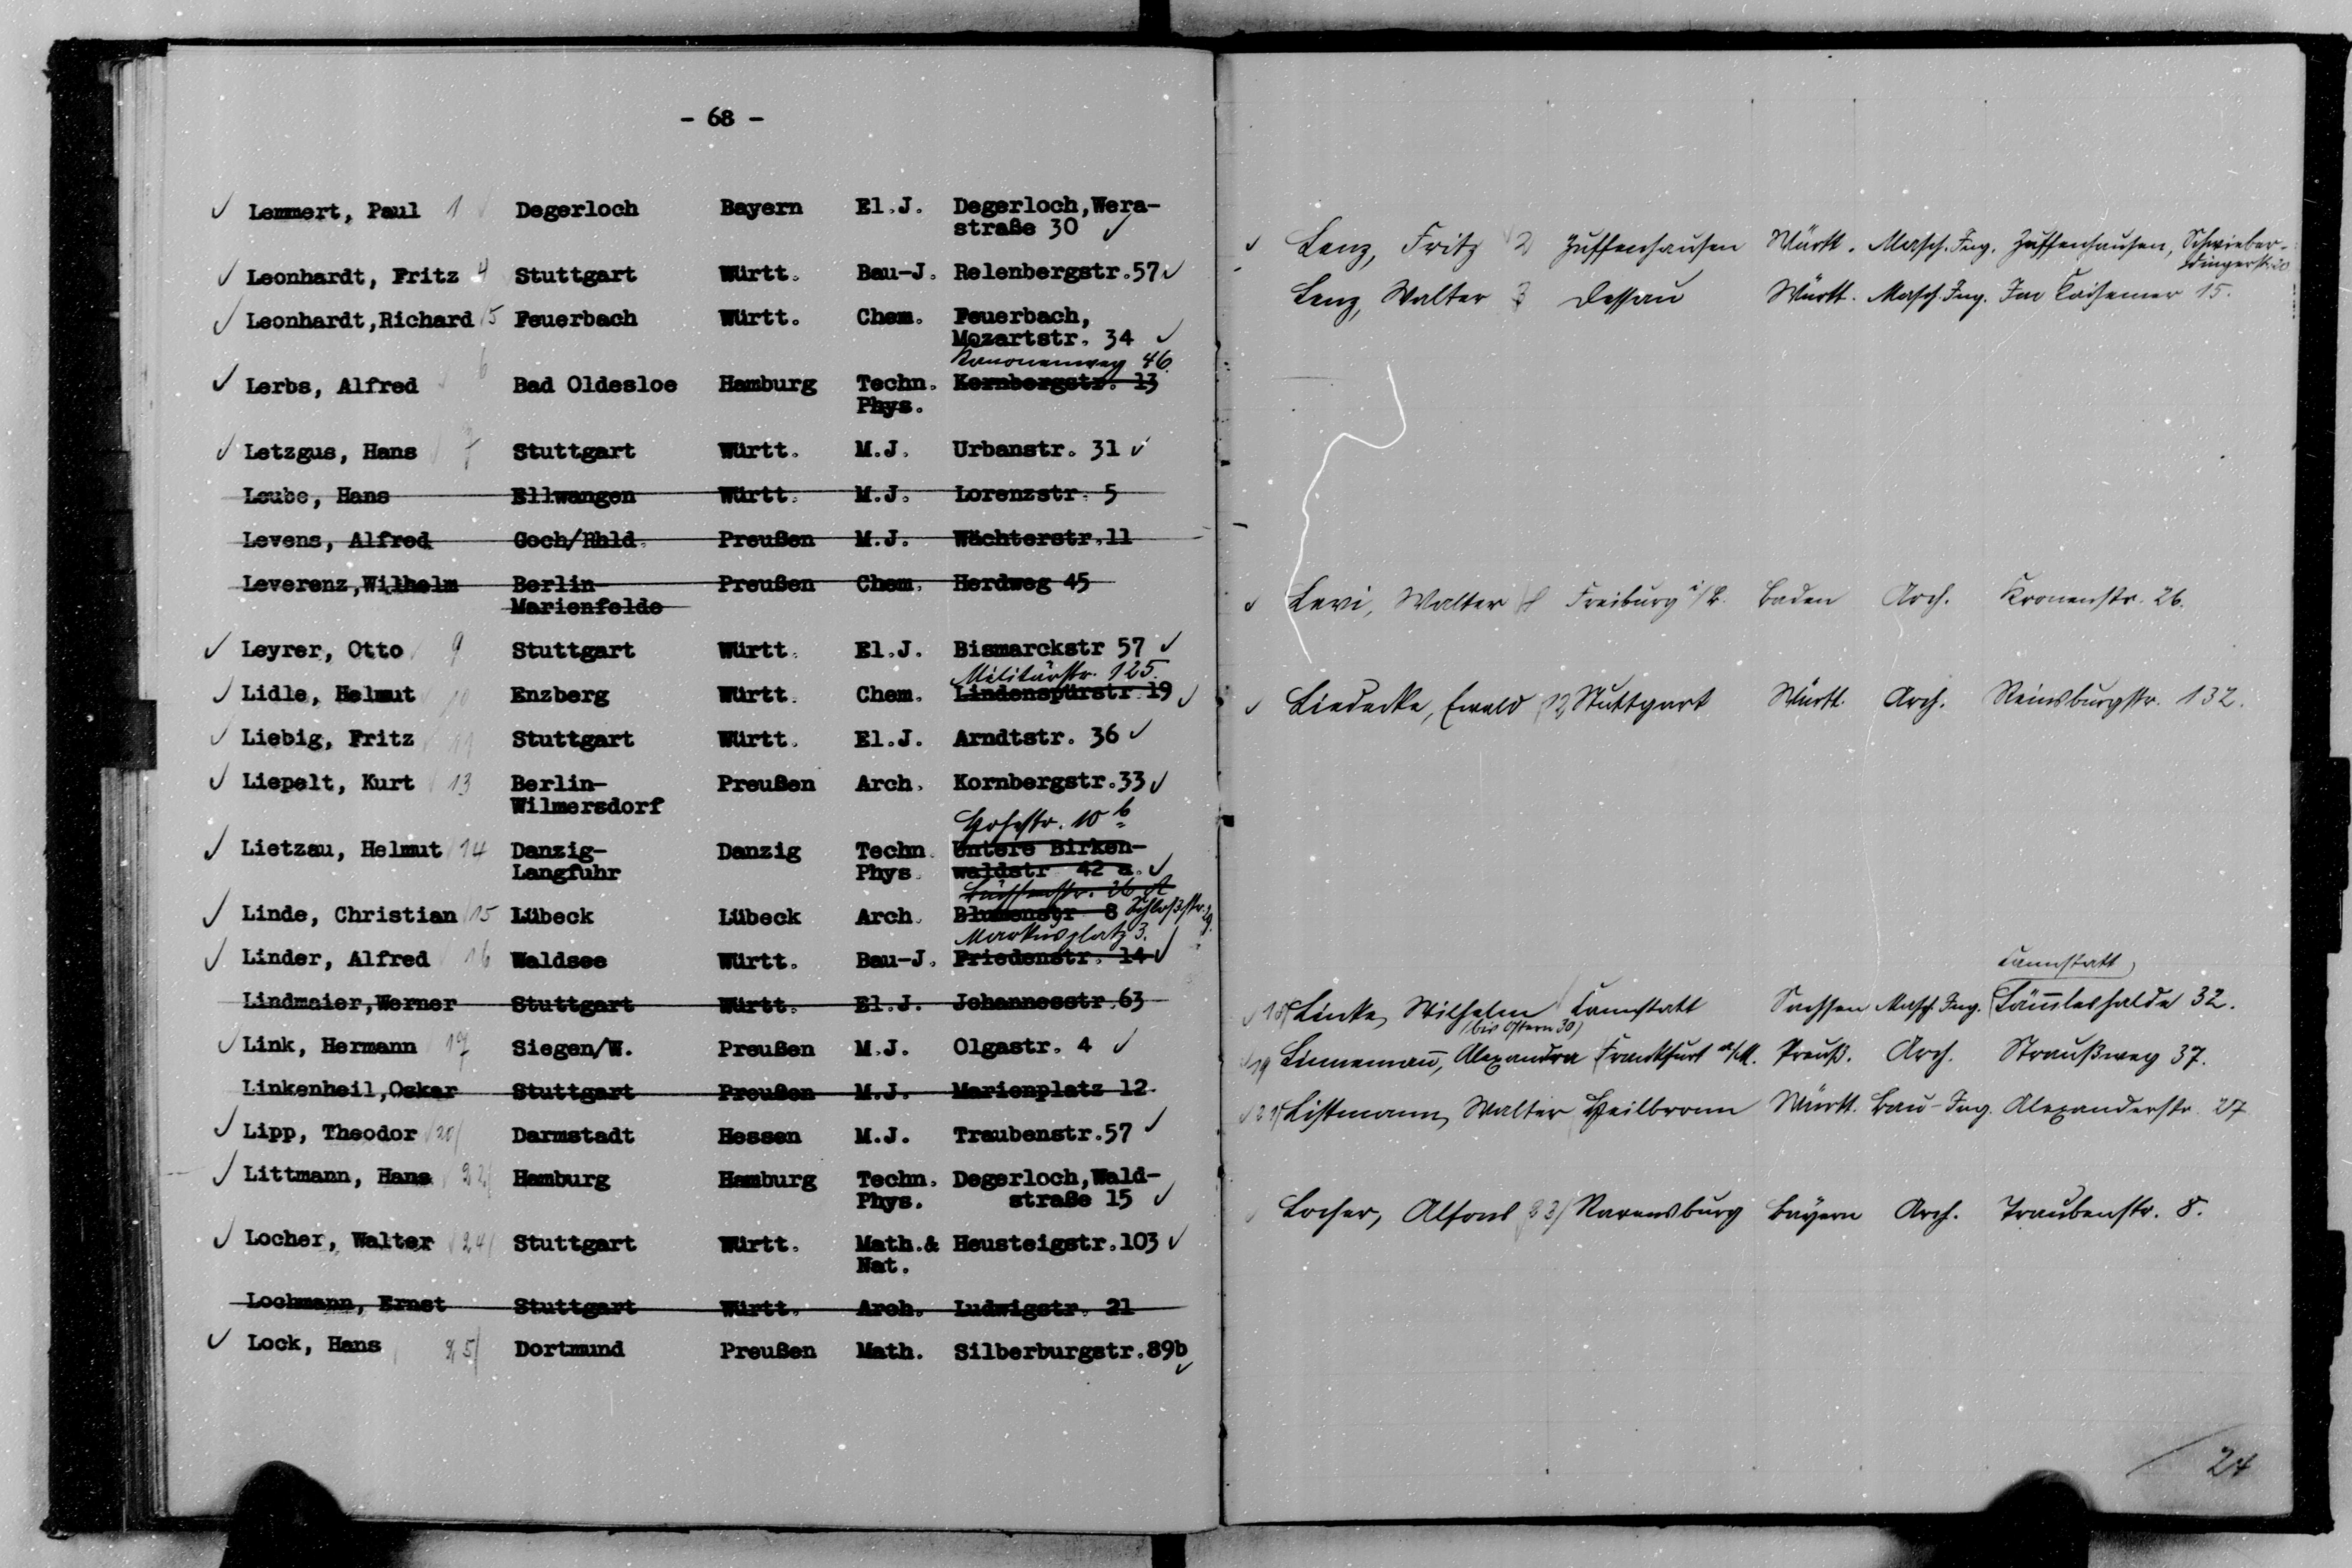 - 68 -
Lemmert, Paul 1 Degerloch Bayern El.J. Degerloch,Wera-
straße 30
Leonhardt, Fritz 4 Stuttgart Württ. Bau-J. Relenbergstr.57
Leonhardt,Richard 5 Feuerbach Württ. Chem. Feuerbach,
Mozartstr. 34
Kanonenweg 46.
Lerbs, Alfred 6 Bad Oldesloe Hamburg Techn. Kornbergstr. 13
Phys.
Letzgus, Hans 7 Stuttgart Württ. M.J. Urbanstr. 31
Leube, Hans Ellwangen Württ. M.J. Lorenzstr. 5
Levens, Alfred Goch/Rhld. Preußen M.J. Wächterstr.11
Leverenz,Wilhelm Berlin- Preußen Chem. Herdweg 45
Marienfelde
Leyrer, Otto 9 Stuttgart Württ. El.J. Bismarckstr 57
Militärstr. 125.
Lidle, Helmut 10 Enzberg Württ. Chem. Lindenspürstr 19
Liebig, Fritz 11 Stuttgart Württ. El.J. Arndtstr. 36
Liepelt, Kurt 13 Berlin- Preußen Arch. Kornbergstr.33
Wilmersdorf
Hohestr. 10 b
Lietzau, Helmut 14 Danzig- Danzig Techn. Untere Birken-
Langfuhr Phys. waldstr 42 a.
26 A
Linde, Christian 15 Lübeck Lübeck Arch. Blumenstr 8 Schloßstr.
Markusplatz 3.
Linder, Alfred 16 Waldsee Württ. Bau-J. Friedenstr. 14
Lindmaier,Werner Stuttgart Württ. El.J. Johannesstr.63
Link, Hermann 17 Siegen/W. Preußen M.J. Olgastr. 4
Linkenheil,Oskar Stuttgart Preußen M.J. Marienplatz 12
Lipp, Theodor 20 Darmstadt Hessen M.J. Traubenstr.57
Littmann, Hans 22 Hamburg Hamburg Techn. Degerloch,Wald-
Phys. straße 15
Locher, Walter 24 Stuttgart Württ. Math.& Heusteigstr.103
Nat.
Lochmann, Ernst Stuttgart Württ. Arch. Ludwigstr. 21
Lock, Hans 25 Dortmund Preußen Math. Silberburgstr.89b
Lenz, Fritz 2 Zuffenhausen Württ. Masch.Ing. Zuffenhausen, Schwieber-
dingerstr.
Lenz, Walter 3 Dessau Württ. Masch.Ing. Im Kaisemer 15.
Levi, Walter 8 Freiburg i/B. Baden Arch. Kronenstr. 26.
Liedecke, Ewald 12 Stuttgart Württ. Arch. Reinsburgstr. 132.
Cannstatt
18 Linke, Wilhelm Cannstatt Sachsen Masch.Ing. Lämmleshalde 32.
(bis Ostern 30)
19 Linnemann, Alexandra Frankfurt a/M. Preuß. Arch. Straußweg 37.
21 Listmann, Walter Heilbronn Württ. Bau-Ing. Alexanderstr. 27
Locher, Alfons 23 Ravensburg Bayern Arch. Traubenstr. 8.
24